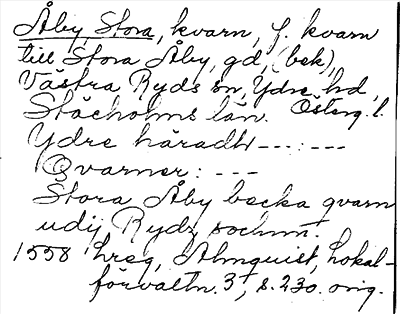 Åby, Stora, kvarn, f. kvarn
till Stora Åby, gd, (bek),
Västra Ryds sn, Ydre hd,
Stäeholms län. Österg. l.
Ydre häradh ---:---
Qvarner: ---
Stora Åby becka qvarn
udij Rydz sochnn.
1558 hreg, Almquist, Lokal-
förvaltn. 3, s. 230. orig.